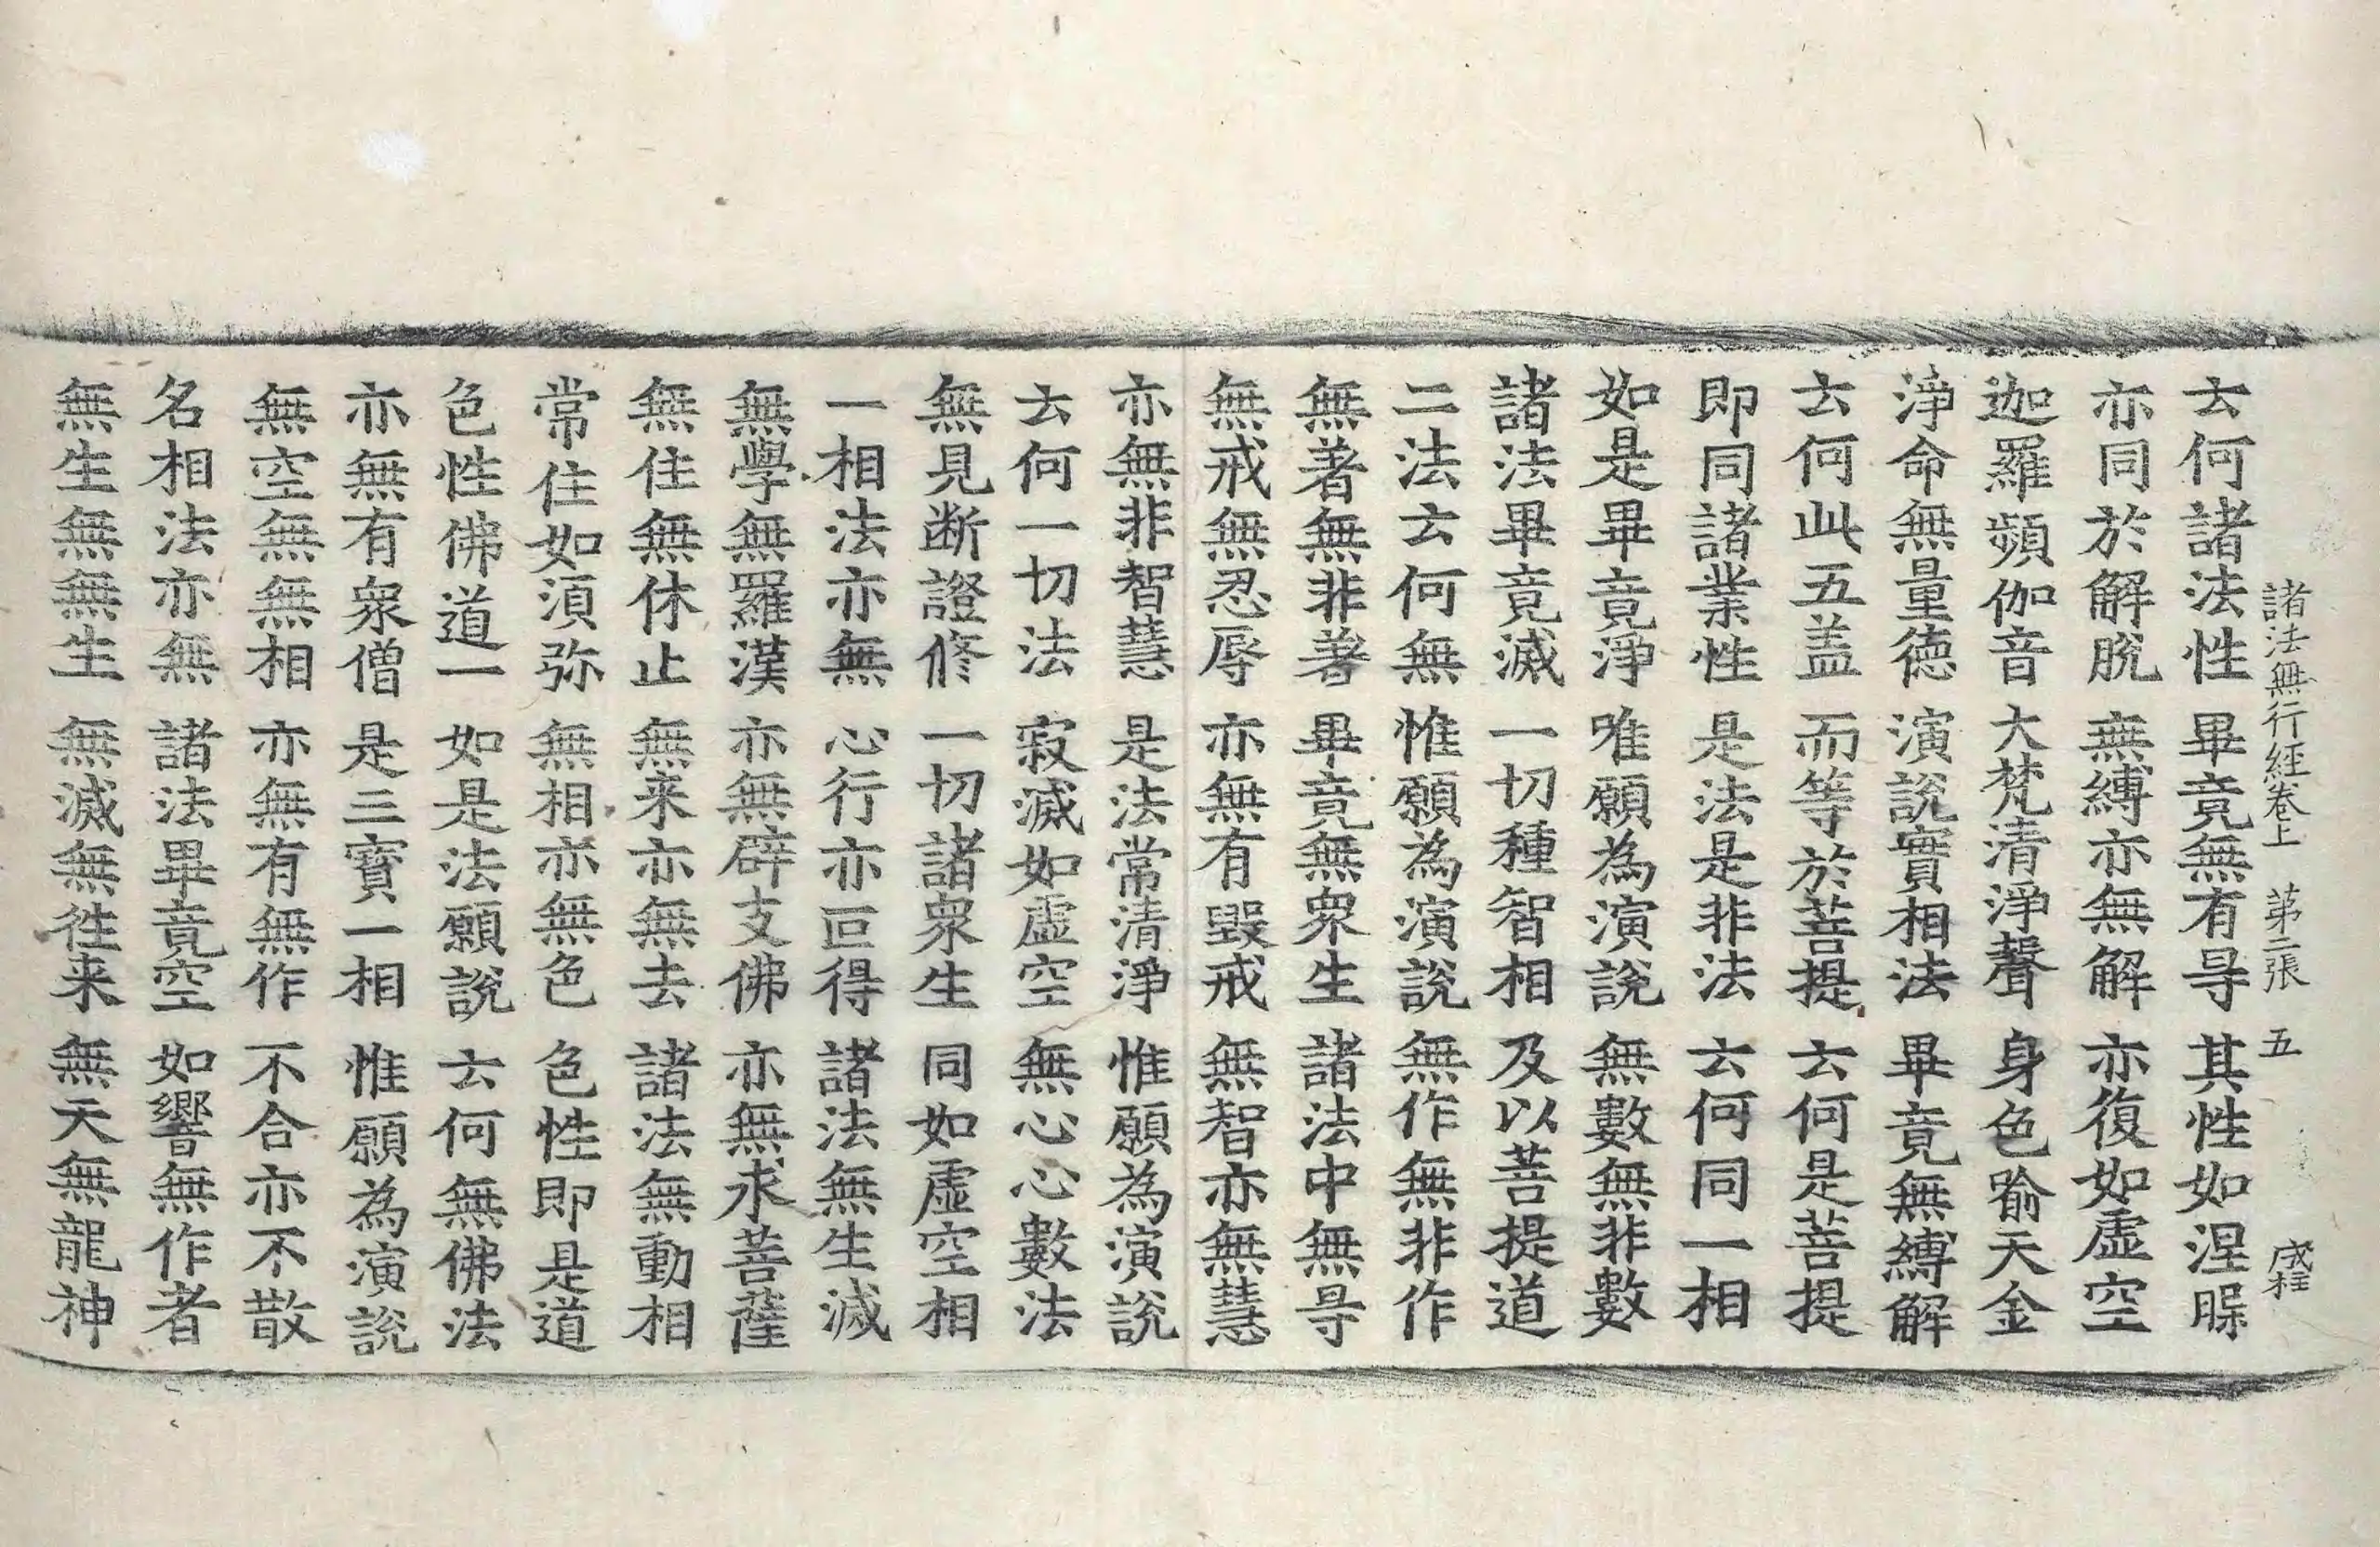 諸法無行經卷上 第二張 五 成程
云何諸法性 畢竟無有㝵 其性如涅𣈆
亦同於解脫 無縛亦無解 亦復如虛空
迦羅頻伽音 大梵清淨聲 身色喻天金
淨命無量德 演說實相法 畢竟無縛解
云何此五盖 而等於菩提 云何是菩提
即同諸業性 是法是非法 云何同一相
如是畢竟淨 唯願為演說 無數無非數
諸法畢竟滅 一切種智相 及以菩提道
二法云何無 惟願為演說 無作無非作
無著無非著 畢竟無眾生 諸法中無㝵
無戒無忍辱 亦無有毀戒 無智亦無慧
亦無非智慧 是法常清淨 惟願為演說
云何一切法 寂滅如虛空 無心心數法
無見断證修 一切諸眾生 同如虛空相
一相法亦無 心行亦叵得 諸法無生滅
無學無羅漢 亦無辟支佛 亦無求菩薩
無住無休止 無来亦無去 諸法無動相
常住如須弥 無相亦無色 色性即是道
色性佛道一 如是法願說 云何無佛法
亦無有眾僧 是三寶一相 惟願為演說
無空無無相 亦無有無作 不合亦不散
名相法亦無 諸法畢竟空 如響無作者
無生無無生 無滅無徃来 無天無龍神